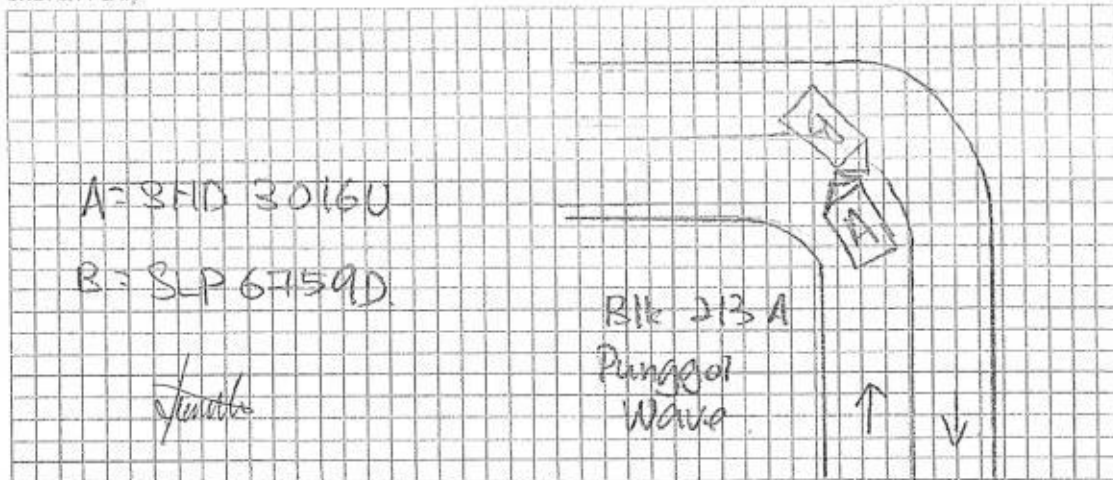 A = SHD 3016U
B = SLP 6759D
Blk 213 A
Punggol
Wave
A